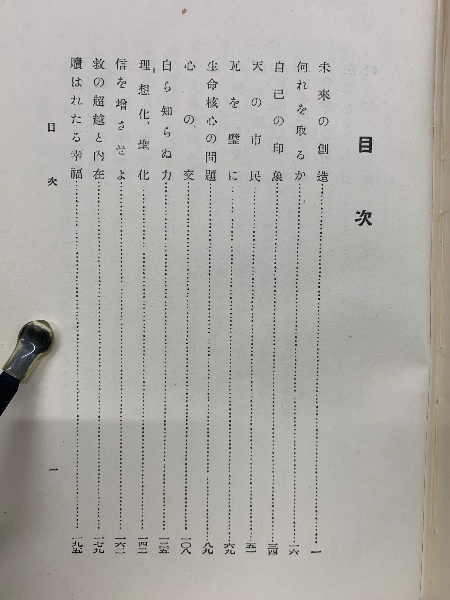 目次
未來の創造…一
何れを取るか…一六
自己の印象…三四
天の市民…五一
瓦を璧に…六九
生命核心の問題…八九
心の交…一〇八
自ら知らぬ力…一二五
理想化、聖化…一四二
信を增させよ…一六二
救の超越と內在…一七九
贖はれたる幸福…一九五
目次
一